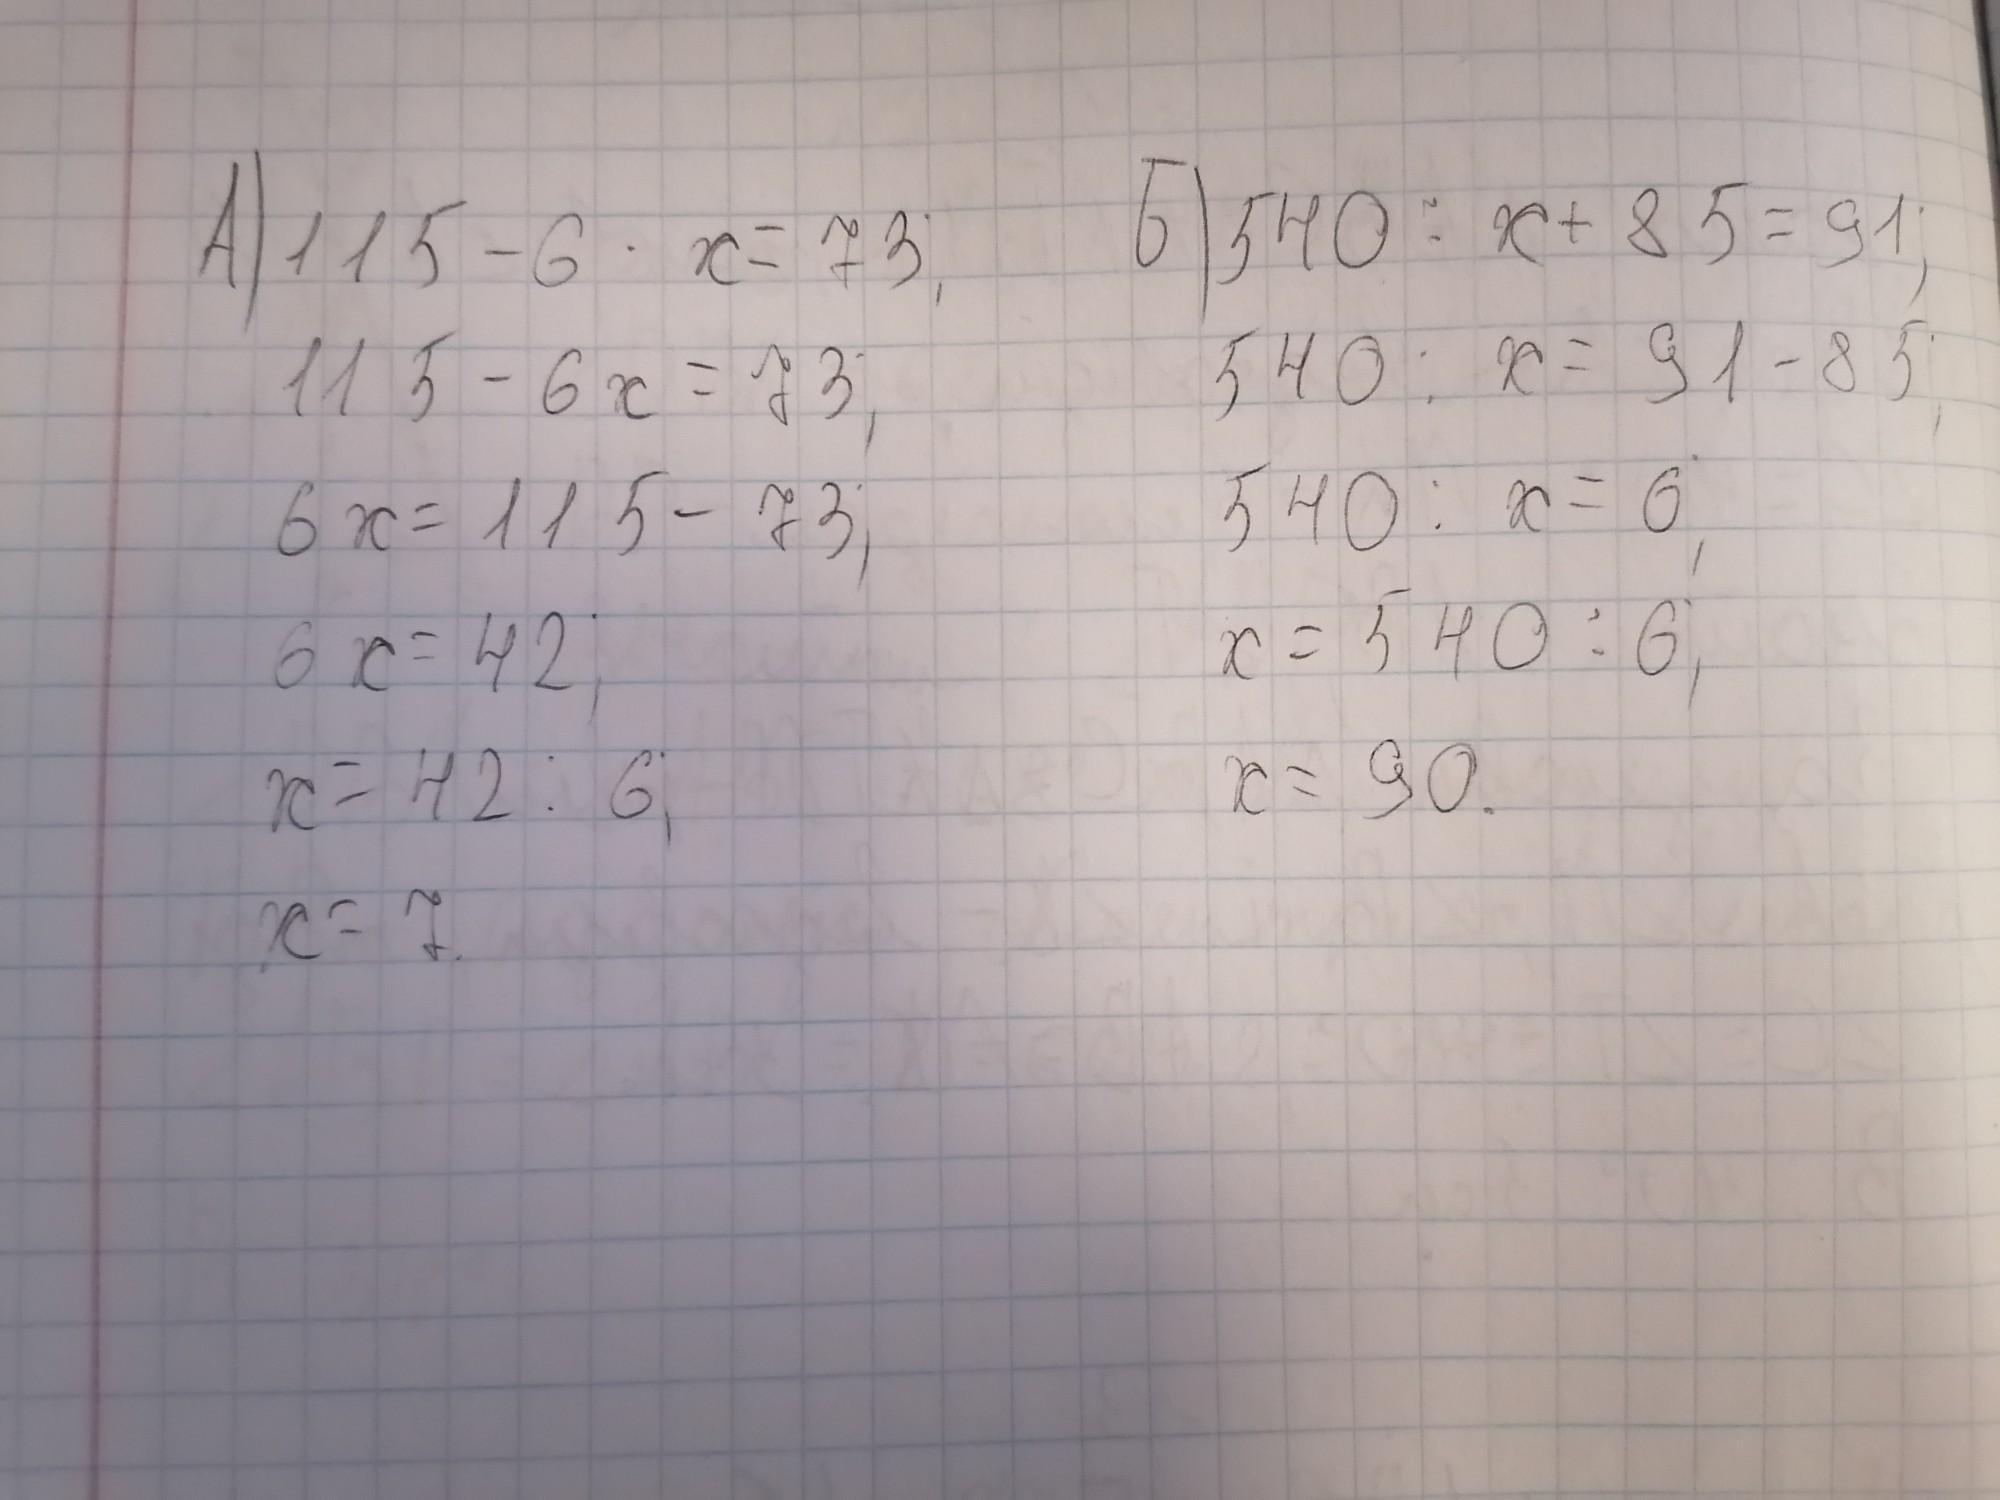 А) 115 - 6 · x = 73;
115 - 6x = 73;
6x = 115 - 73;
6x = 42;
x = 42 : 6;
x = 7.
Б) 540 : x + 85 = 91;
540 : x = 91 - 85;
540 : x = 6;
x = 540 : 6;
x = 90.